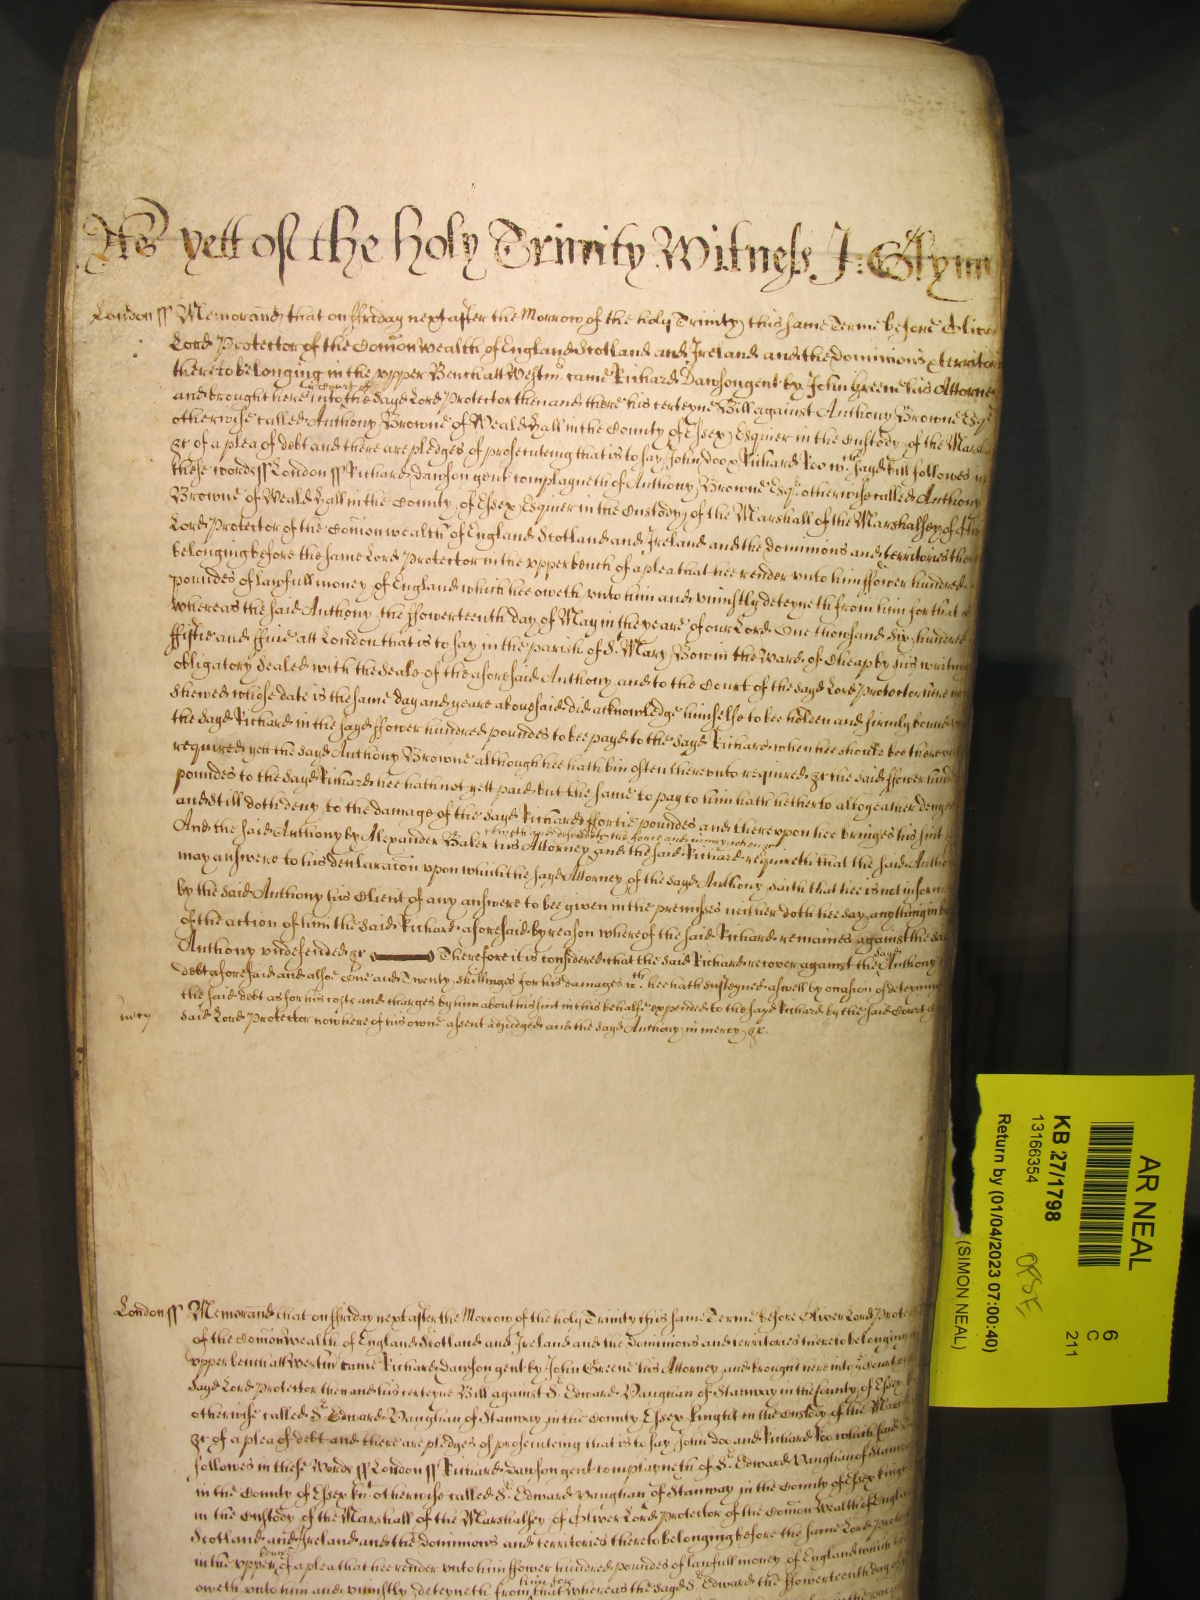 As yett of the holy Trinity Witness J: Glynn
London ss Memorand that on ffriday next after the Morrow of the holy Trinity this same Terme before Oliver
Lord Protector of the Comon Wealth of England Scotland and Ireland and the dominions & territor
thereto belonging in the vpper Bench att Westmr came Richard Dawson gent by John Greene his Attorney
and brought here into the Court of the sayd Lord Protector then and there his certeyne Bill against Anthony Browne Esqr
otherwise called Anthony Browne of Weald Hall in the County of Essex Esquier in the Custody of the Marshall
&c of a plea of debt and there are pledges of prosecuteing that is to say John doo & Richard Roo wch sayd bill followes in
these words ss London ss Richard dawson gent complayneth of Anthony Browne Esqr otherwise called Anthony
Browne of Weald Hall in the County of Essex Esquier in the Custody of the Marshall of the Marshalsey of Oliver
Lord Protector of the Comonwealth of England Scotland and Ireland and the dominions and territories there
belonging before the same Lord Protector in the vpper bench of a plea that hee render vnto him ffower hundred
poundes of lawfull money of England which hee oweth vnto him and vniustly deteyneth from him for that
Whereas the said Anthony the ffowerteenth day of May in the yeare of our Lord One thousand six hundred
ffiftie and ffive att London that is to say in the parish of St Mary Bow in the Ward of Cheap by his writing
obligatory Sealed with the Seale of the aforesaid Anthony and to the Court of the sayd Lord Protector here now
shewed whose date is the same day and yeare abovesaid did acknowledge himselfe to bee holden and firmly bound
the sayd Richard in the sayd ffower hundred poundes to bee payd to the sayd Richard when hee should bee therevnto
required yett the sayd Anthony Browne although hee hath bin often therevnto required &c the said ffower hundred
poundes to the sayd Richard hee hath not yett paid but the same to pay to him hath hetherto altogeather denyed
and still doth deny to the damage of the sayd Richard ffortie poundes and therevpon hee bringes his suit
And the said Anthony by Alexander Baker his Attorney cometh and defendeth the force and iniury when &c and the said Richard requireth that the said Anthony
may answere to his declaracon vpon which the sayd Attorney of the sayd Anthony saith that hee is not informed
by the said Anthony his Client of any answere to bee given in the premisses neither doth hee say anything in barr
of the action of him the said Richard aforesaid by reason whereof the said Richard remaines against the said
Anthony vndefended &c Therefore it is considered that the said Richard recover against the sayd Anthony
debt aforesaid and alsoe One and Twenty shillinges for his damages wch hee hath susteyned aswell by occasion of deteyning
the said debt as for his costs and charges by him about his suit in this behalfe expended to the sayd Richard by the said Court of
said Lord Protector now here of his owne assent adjudged and the sayd Anthony in mercy &c.
mcy
London ss Memorand that on ffriday next after the Morrow of the holy Trinity this same Terme before Oliver Lord Protector
of the Comonwealth of England Scotland and Ireland and the Dominions and territories thereto belonging
vpper bench att Westmr came Richard dawson gent by John Greene his Attorney and brought here into ye Court of
sayd Lord Protector then and his certeyne Bill against Sr Edward Vaughan of Stanway in the County of Essex
otherwise called Sr Edward Vaughan of Stanway in the County Essex knight in the Custody of the Marshall
&c of a plea of debt and there are pledges of prosecuteing that is to say John doo and Richard Roo which said
followes in these Words ss London ss Richard dawson gent complayneth of Sr Edward Vaughan of Stanway
in the County of Essex knt otherwise called Sr Edward Vaughan of Stanway in the County of Essex knight
in the Custody of the Marshall of the Marshalsey of Oliver Lord Protector of the Comon Wealth of England
Scotland and Ireland and the dominions and territories thereto belonging before the same Lord Protector
in the vpper bench of a plea that hee render vnto him ffower hundred poundes of lawfull money of England which hee
oweth vnto him and vniustly deteyneth from him for that Whereas the sayd Sr Edward the ffowerteenth day of
AR NEAL
KB 27/1798
13166354
Return by (01/04/2023 07:00:40)
(SIMON NEAL)
6
C
211